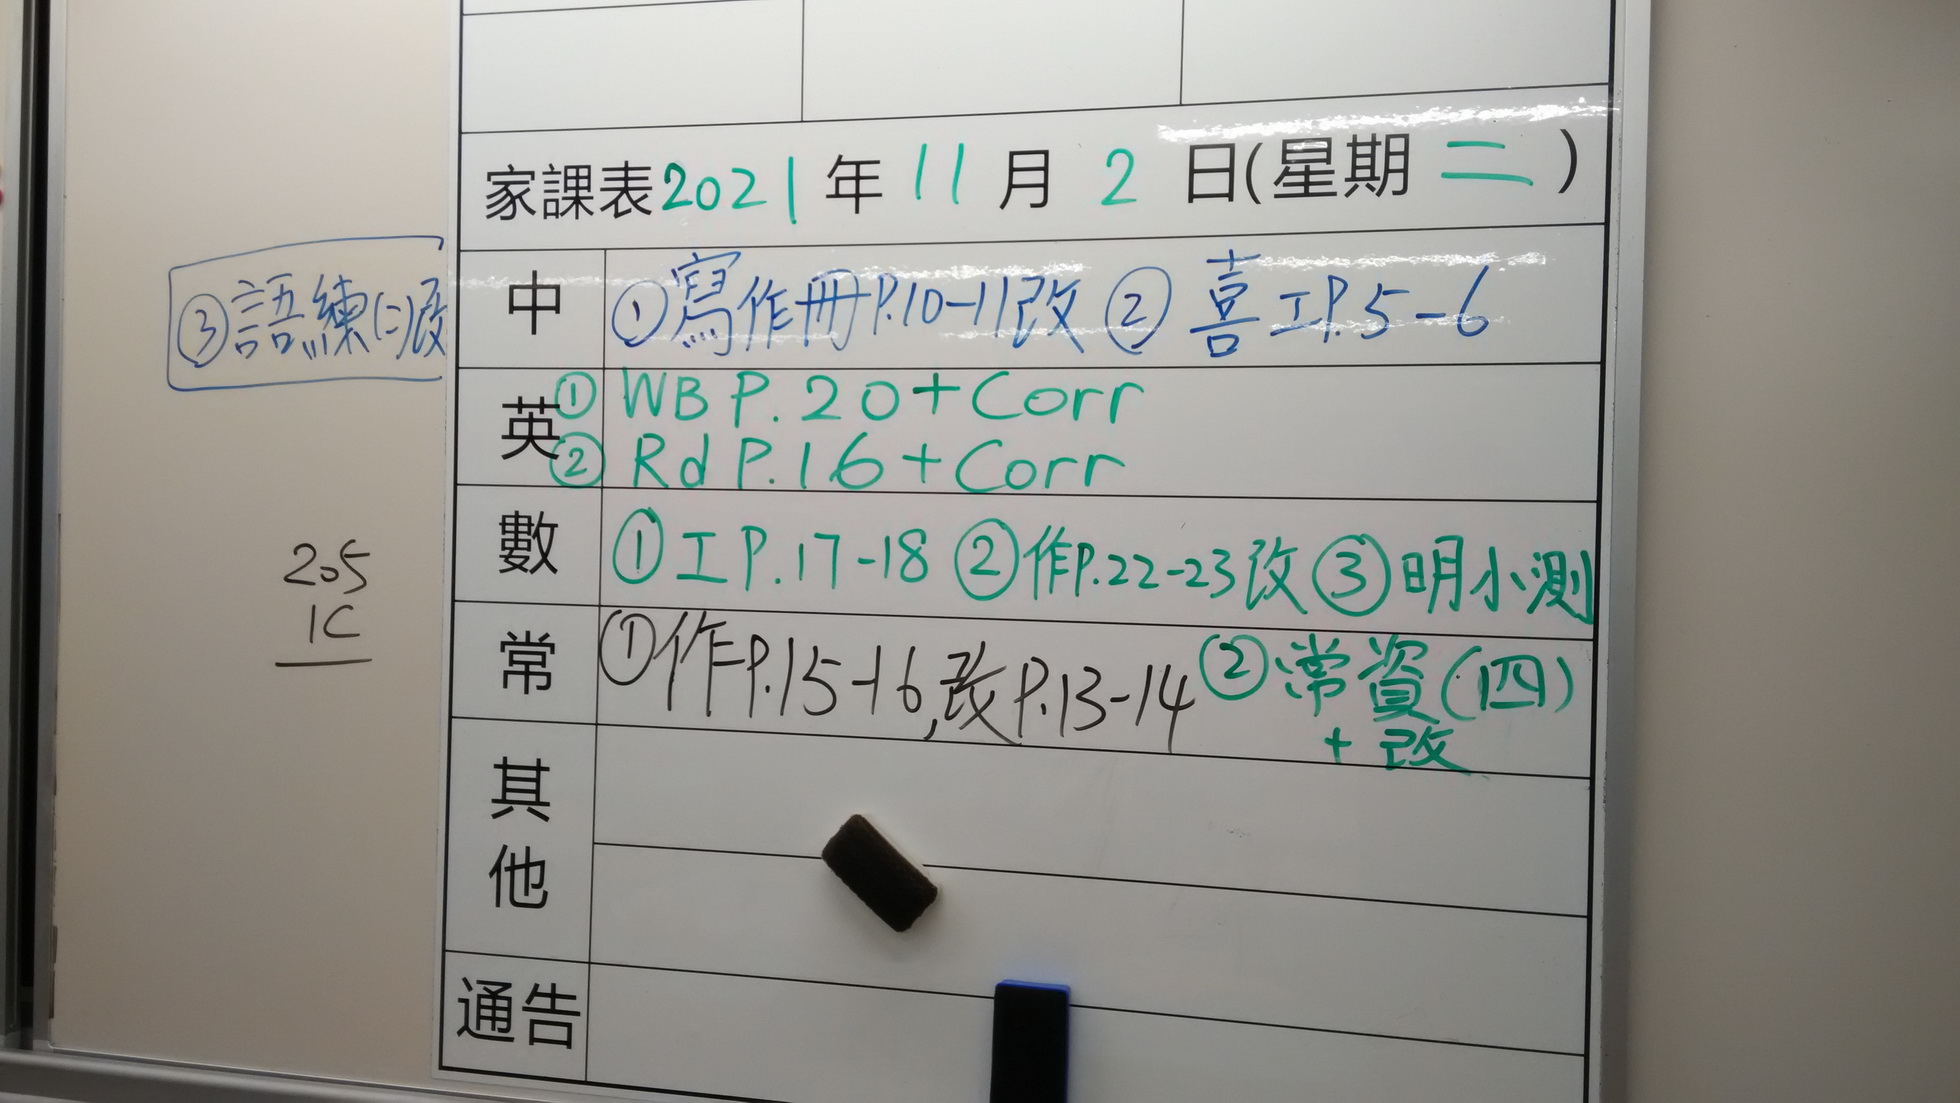 家課表2021年11月2日(星期二)
③語練(二)改
中 ①寫作冊P.10-11改 ② 喜工P.5-6
英 ① WB P.20+Corr
② Rd P.16+Corr
數 ①工P.17-18 ②作P.22-23改 ③明小測
205
1C
常 ①作P.15-16,改P.13-14 ②常資(四)
+改
其他
通告